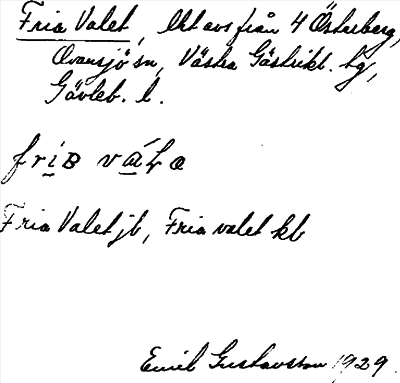 Fria Valet, lht avs från 4 Österberg,
Ovansjö sn, Västra Gästrikl. tg,
Gävleb. l.
Fria Valet jb, Fria valet kb
Emil Gustavsson 1929.